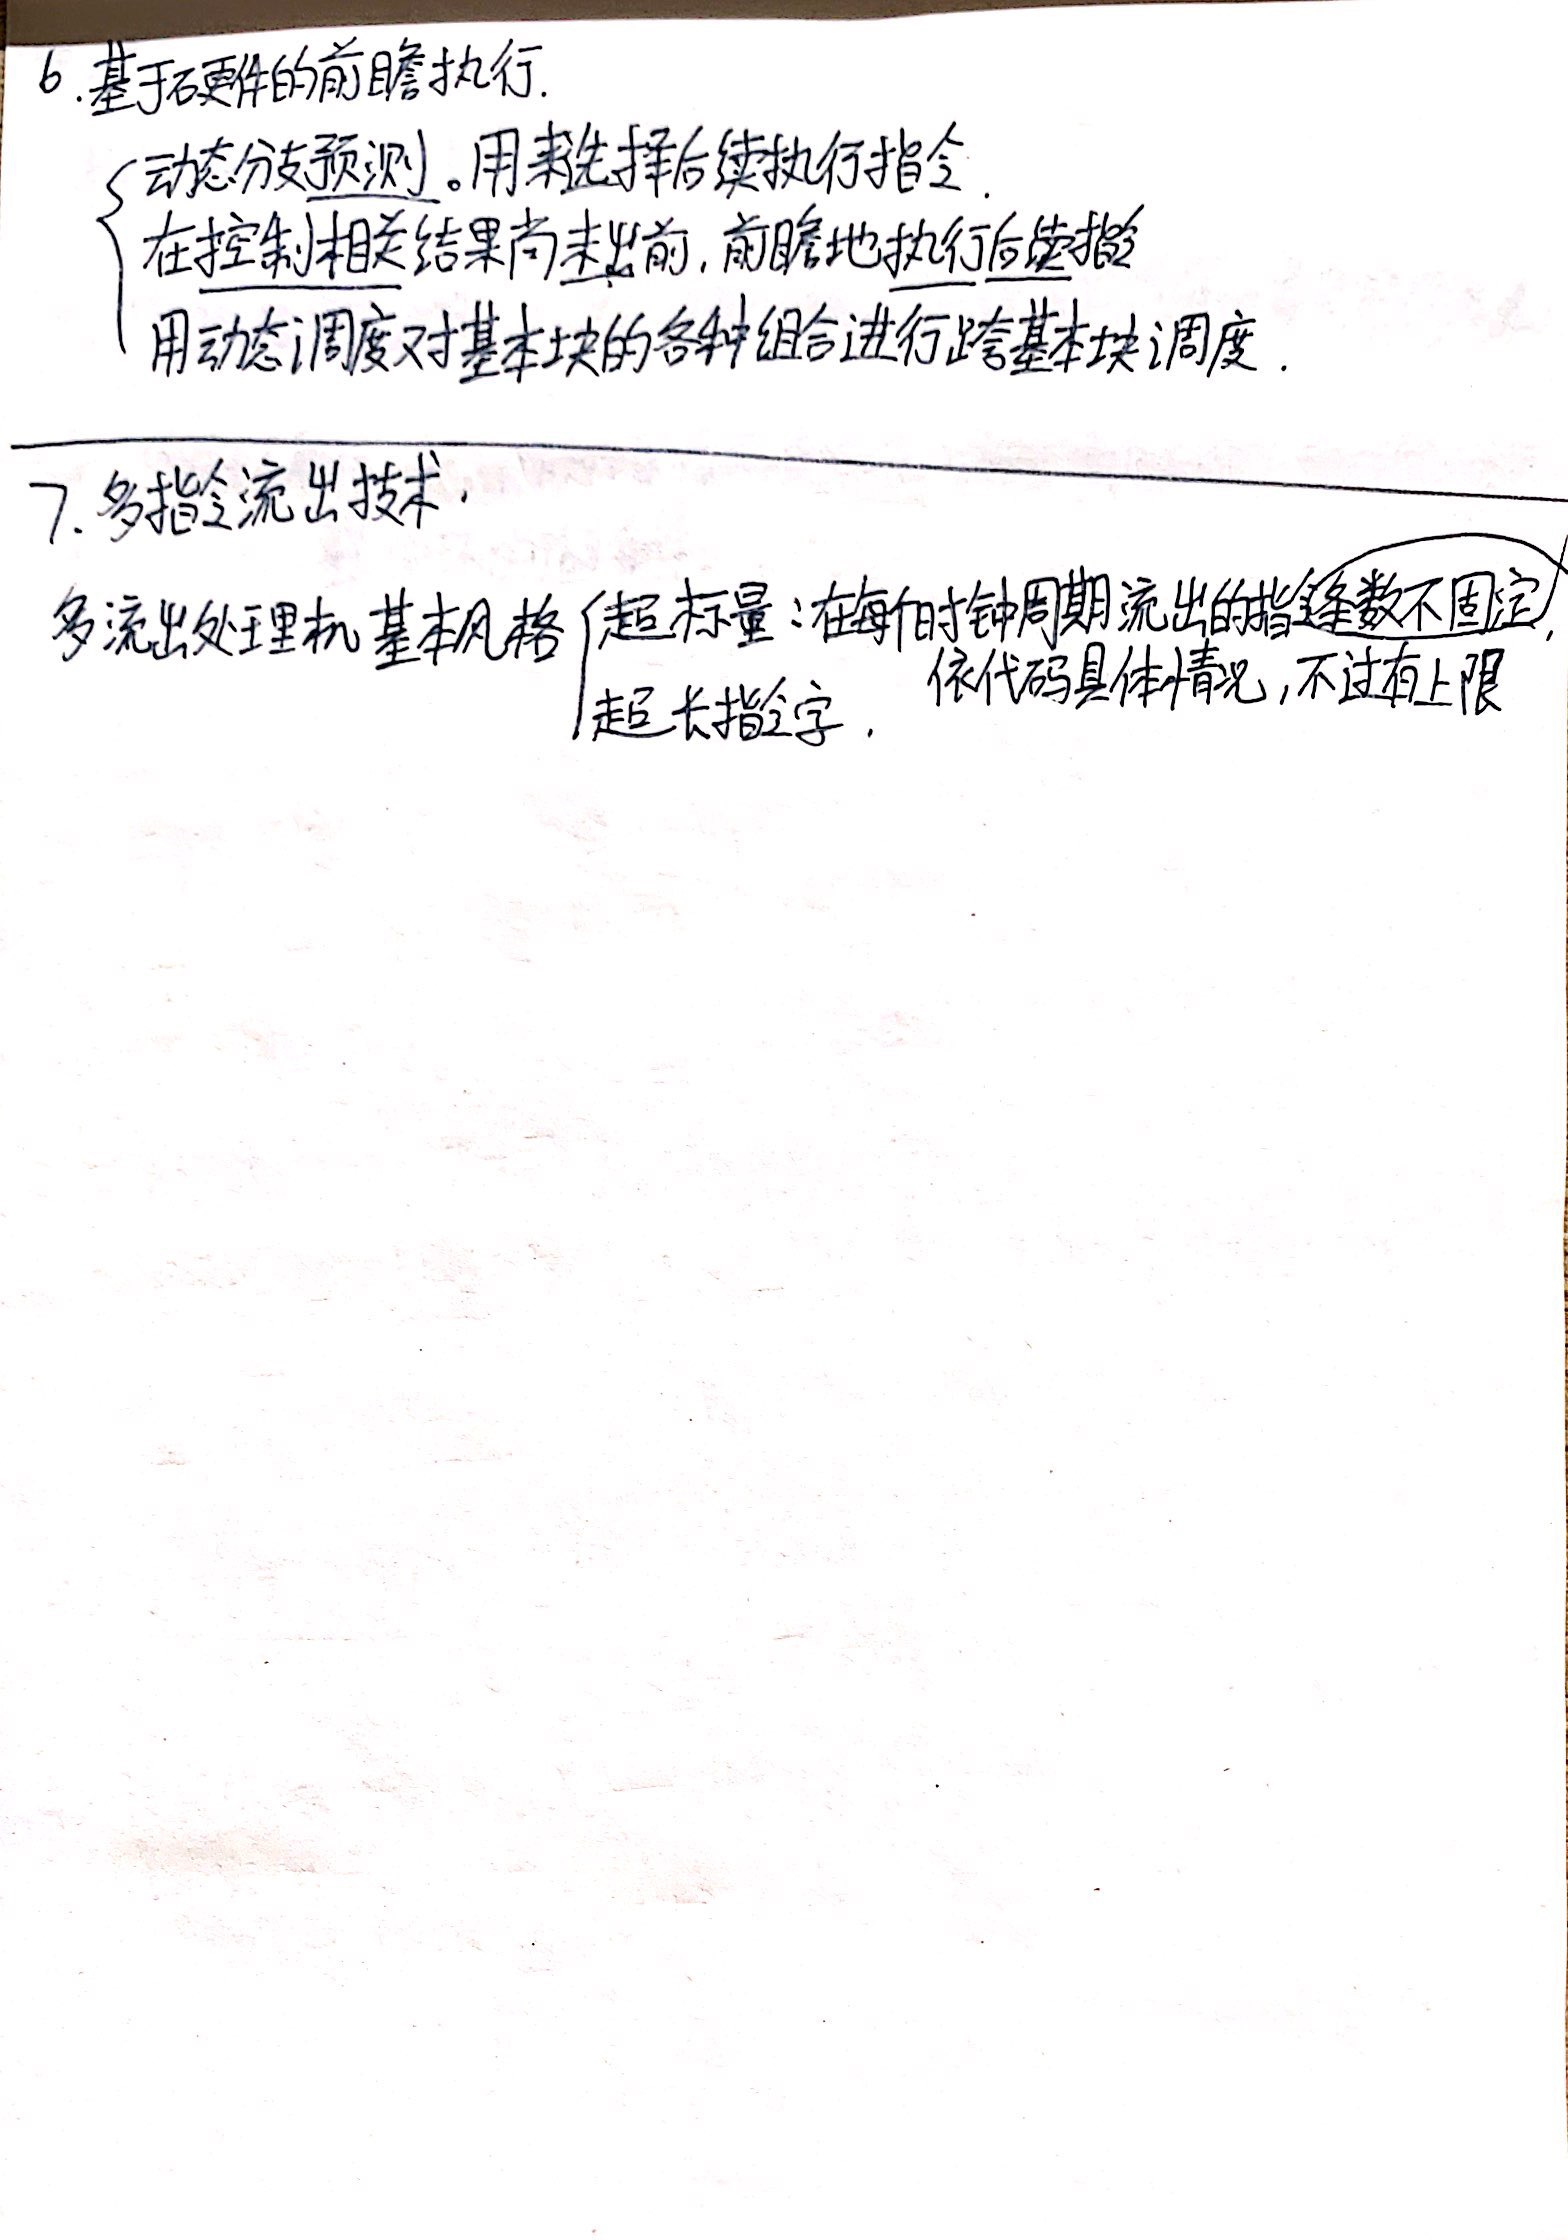 6.基于硬件的前瞻执行.
动态分支预测。用来选择后续执行指令.
在控制相关结果尚未出前,前瞻地执行后续指令
用动态调度对基本块的各种组合进行跨基本块调度.
7.多指令流出技术.
多流出处理机基本风格 超标量:在每个时钟周期流出的指令条数不固定,
依代码具体情况,不过有上限
超长指令字.